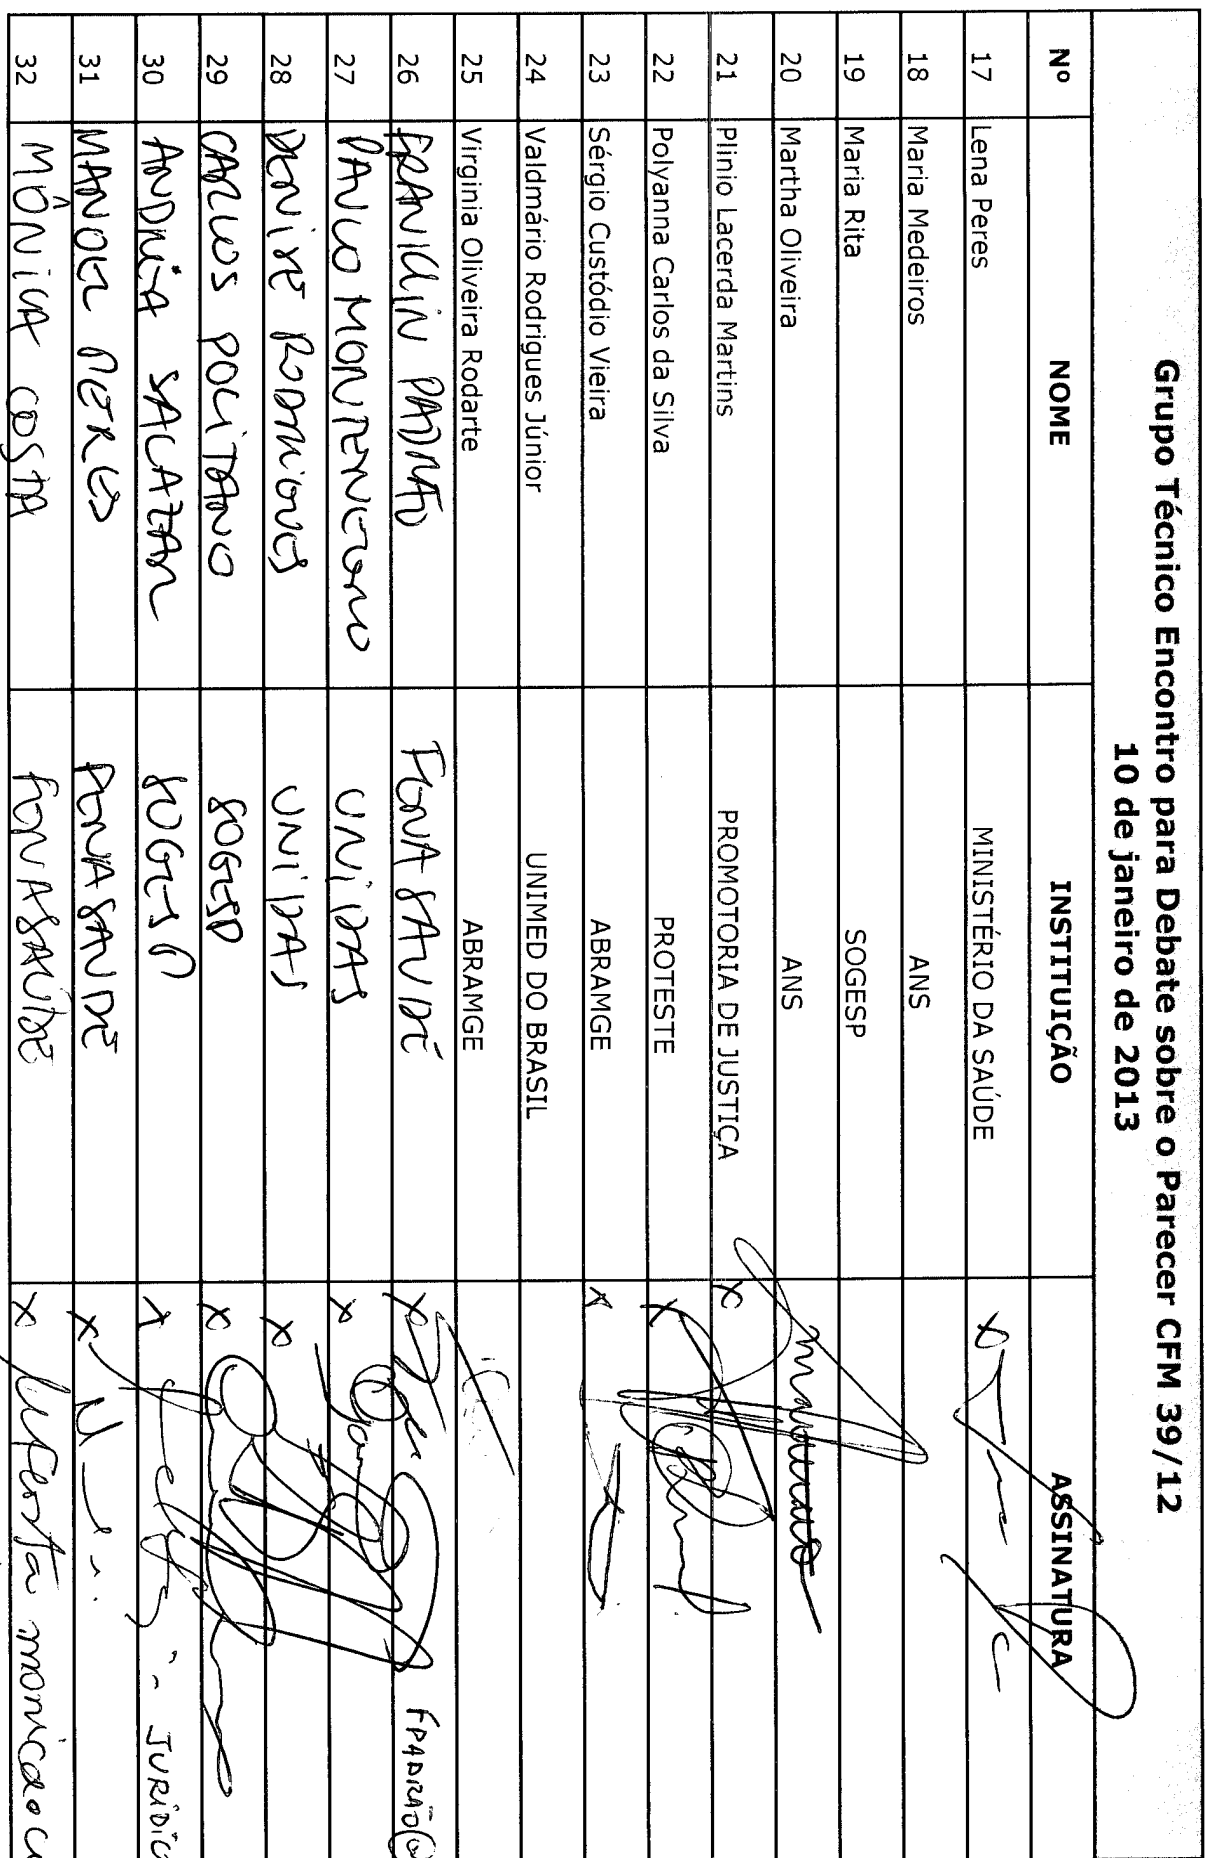 Grupo Técnico Encontro para Debate sobre o Parecer CFM 39/12
10 de janeiro de 2013
Nº NOME INSTITUIÇÃO ASSINATURA
17 Lena Peres MINISTÉRIO DA SAÚDE
18 Maria Medeiros ANS
19 Maria Rita SOGESP
20 Martha Oliveira ANS
21 Plinio Lacerda Martins PROMOTORIA DE JUSTIÇA X
22 Polyanna Carlos da Silva PROTESTE X
23 Sérgio Custódio Vieira ABRAMGE X
24 Valdmário Rodrigues Júnior UNIMED DO BRASIL
25 Virginia Oliveira Rodarte ABRAMGE
26 FRANKLIN PADRÃO FENASAUDE X FPADRAO@
27 PAULO MONTENEGRO UNIDAS X
28 DENISE RODRIGUES UNIDAS X
29 CARLOS POLITANO SOGESP X
30 ANDRÉIA SALAZAR SOGESP X JURIDICO
31 MANOEL PERES FENASAUDE X
32 MÔNICA COSTA FENASAÚDE X